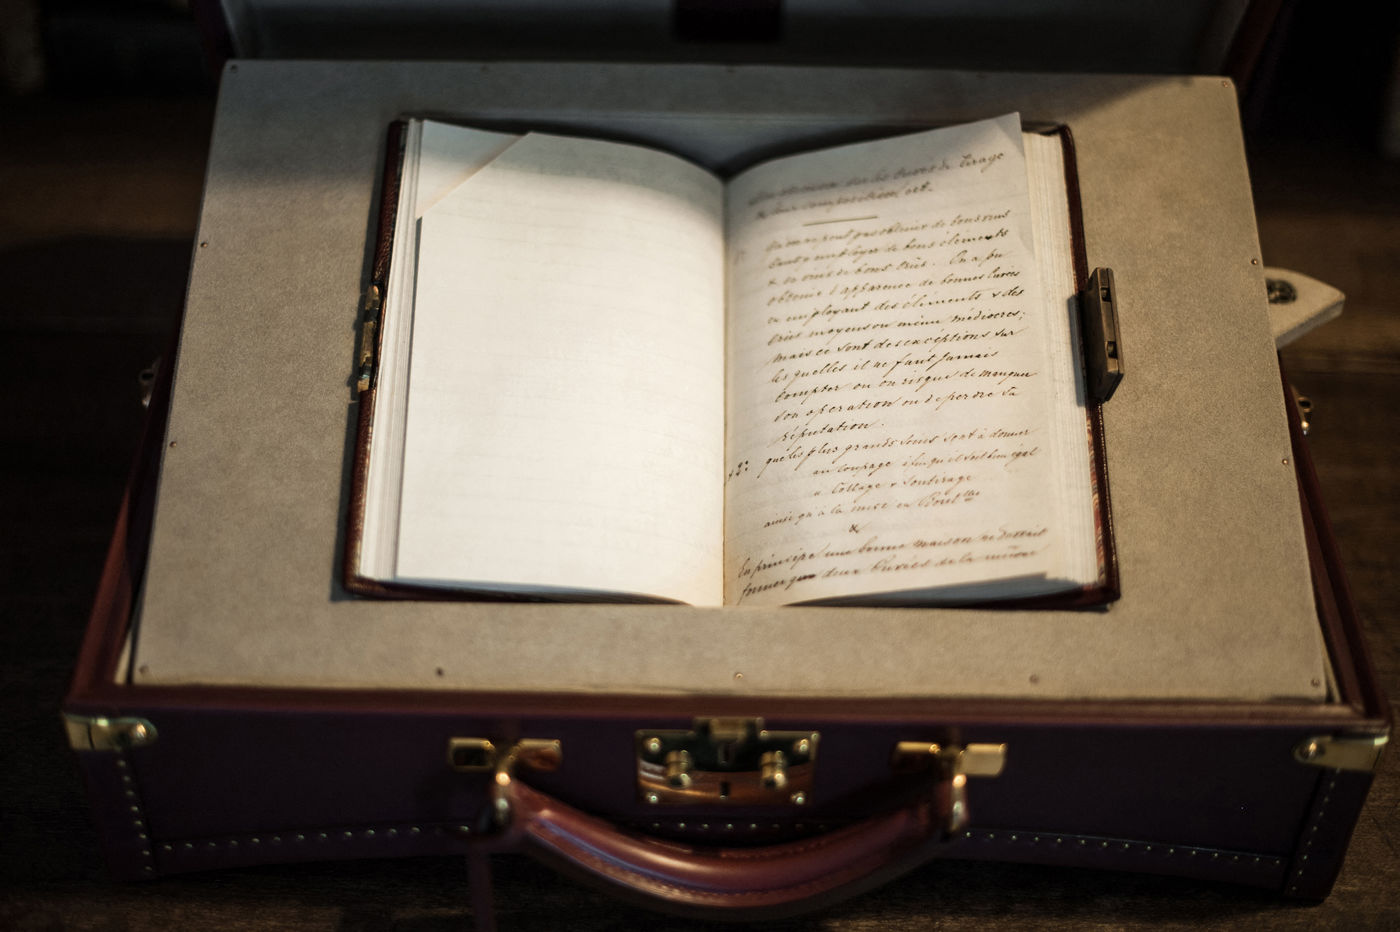 Observations sur les Cuvées de Tirage
& leur composition, etc.
1° On ne peut pas obtenir de bons vins
sans employer de bons éléments
& de vins de bons crûs. On a pu
obtenir l'apparence de bonnes Cuvées
en employant des éléments & des
crûs moyens ou même médiocres;
mais ce sont des exceptions sur
lesquelles il ne faut jamais
Compter ou on risque de manquer
son opération ou de perdre sa
réputation.
2° que les plus grands soins sont à donner
au Coupage afin qu'il soit bien égal
a Collage & Soutirage
ainsi qu'à la mise en Bout^lles
&
En principe une bonne maison ne devrait
former que deux Cuvées de la même